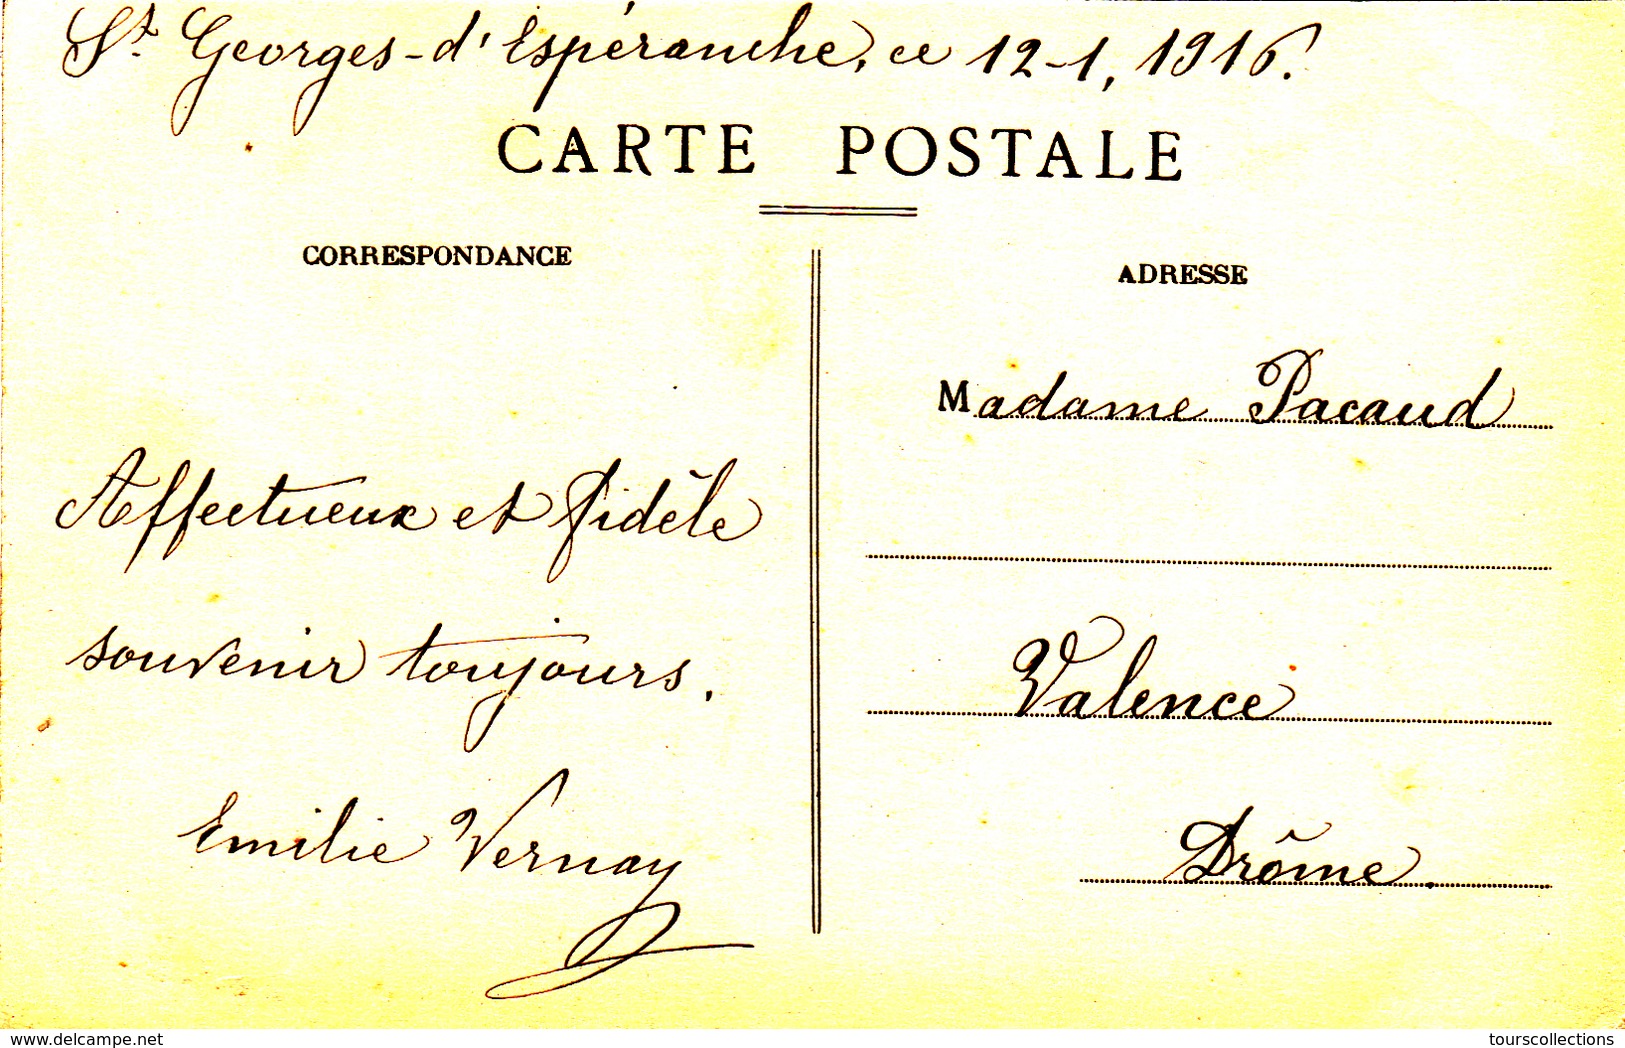 St Georges-d'Espéranche, ce 12-1, 1916.
CARTE POSTALE
CORRESPONDANCE
ADRESSE
Madame Pacaud
Affectueux et fidèle
souvenir toujours.
Valence
Emilie Vernay
Drôme.
www.delcampe.net
tourscollections